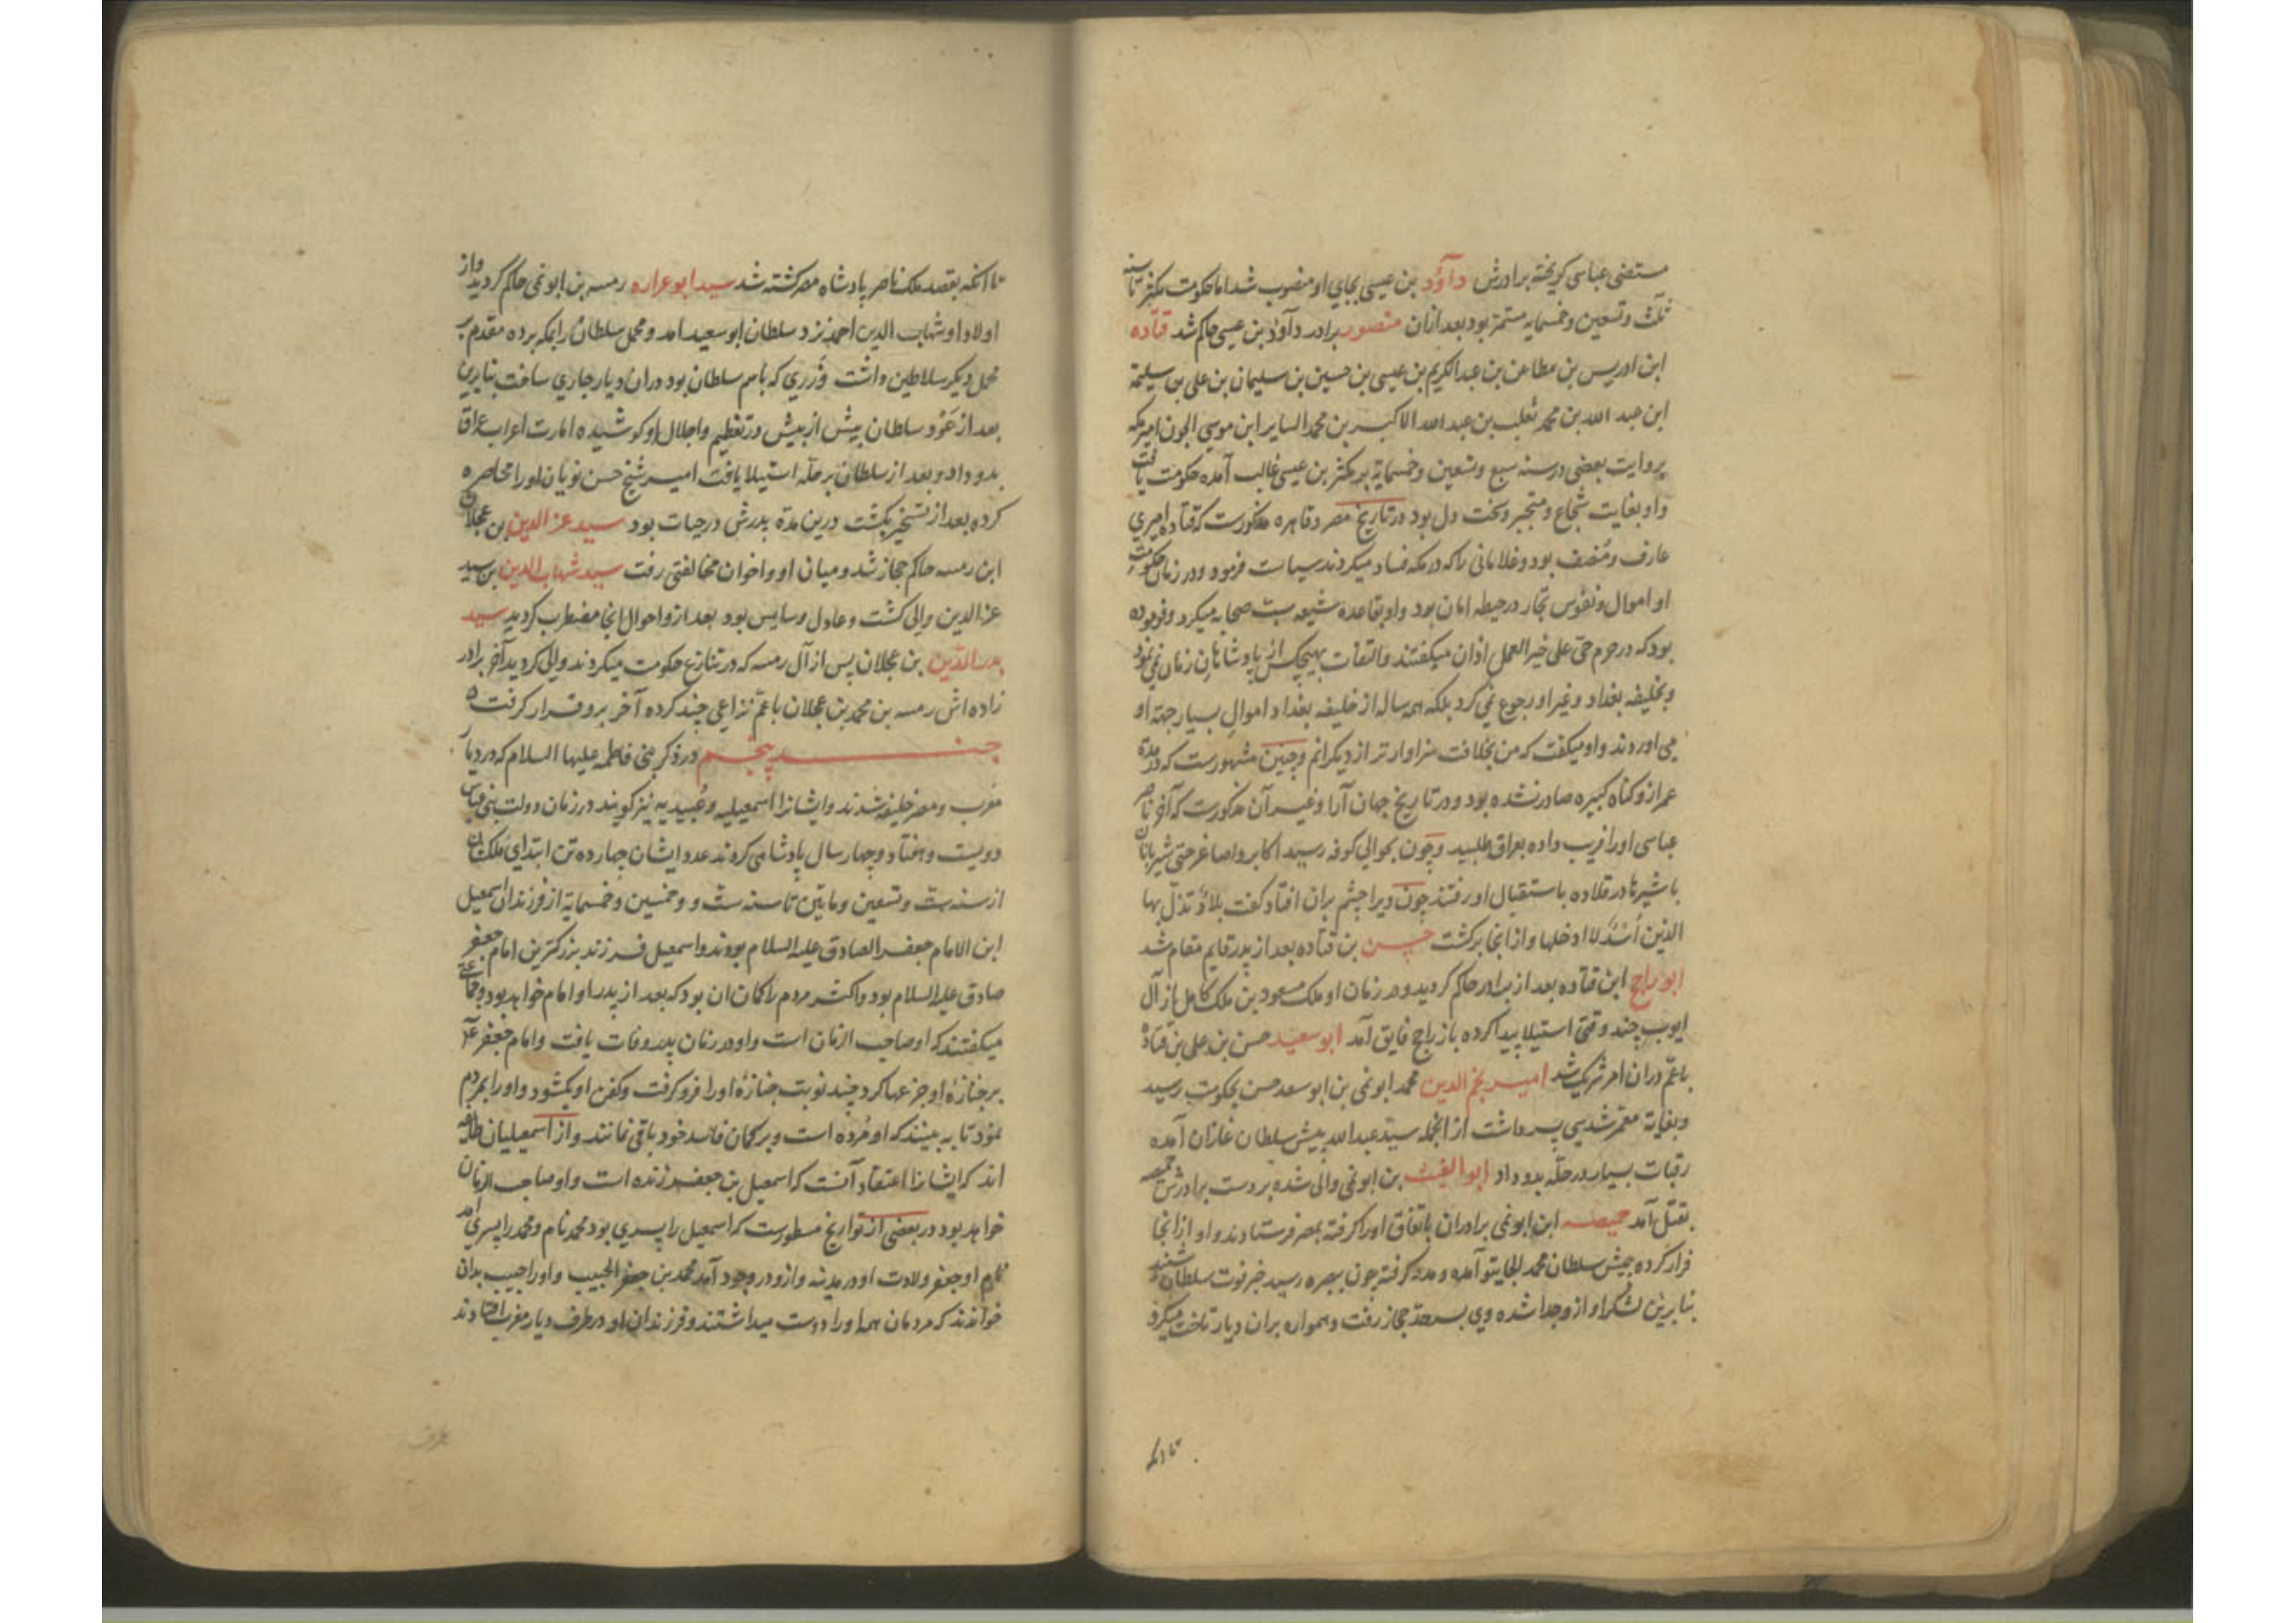 مستضی عباسی کریخته برادرش داؤد بن عیسی بجای او منصوب شد اما حکومت مکثر تا سنه
ثلث و تسعین و خمسمایه مستمر بود بعد ازان منصور برادر داود بن عیسی حاکم شد قتاده
ابن ادریس بن مطاعن بن عبد الکریم بن عیسی بن حسین بن سلیمان بن علی بن سلیمة
ابن عبد الله بن محمد ثعلب بن عبد الله الاکبر بن محمد السایر ابن موسی الجون امیر مکه
بروایت بعضی در سنه سبع و تسعین و خمسمایة بر مکثر بن عیسی غالب آمده حکومت یافت
و او بغایت شجاع و متجبر و سخت دل بود در تاریخ مصر و قاهره مذکورست که قتاده امیری
عارف و منصف بود و غلامانی را که در مکه فساد میکردند سیاست فرمود و در زمان حکومت
او اموال و نفوس تجار در حیطه امان بود و او بقاعده شیعه سب صحابه میکرد و فرموده
بود که در حرم حی علی خیر العمل اذان میکفتند و التفات بهیچکس از پادشاهان زمان نمی نمود
و بخلیفه بغداد و غیر او رجوع نمی کرد بلکه هر ساله از خلیفه بغداد اموال بسیار جهة او
می اوردند و او میکفت که من بخلافت سزاوار تر از دیکرانم و چنین مشهورست که در مدة
عمر ازو کناه کبیره صادر نشده بود و در تاریخ جهان آرا و غیر آن مذکورست که آخر ناصر
عباسی او را فریب داده بعراق طلبید و چون بحوالی کوفه رسید اکابر و اصاغر حتی شیربانان
با شیرها در قلاده باستقبال او رفتند چون ویرا چشم بران افتاد کفت بلاد تذل بها
الذین اسد لا ادخلها و از انجا برکشت حسن بن قتاده بعد از پدر قایم مقام شد
ابو راج ابن قتاده بعد از برادر حاکم کردید و در زمان او ملک مسعود بن ملک کامل از آل
ایوب چند وقتی استیلا پیدا کرده باز راج فایق آمد ابو سعید حسن بن علی بن قتاده
با عم دران امر شریک شد امیر نجم الدین محمد ابو نمی بن ابو سعد حسن بحکومت رسید
و بغایة معمر شد سی پسر داشت از انجمله سید عبد الله پیش سلطان غازان آمده
رقبات بسیار در حله بدو داد ابو الغیث بن ابو نمی والی شده بر دست برادرش حمیصه
بقتل آمد حمیصه ابن ابو نمی برادران باتفاق او را کرفته بمصر فرستادند و او از انجا
فرار کرده پیش سلطان محمد الجایتو آمده و مدد کرفته چون ببصره رسید خبر فوت سلطان شنید
بنابرین لشکر او ازو جدا شده وی بسرحد حجاز رفت و همواره بران دیار تاخت میکرد
تا انکه
تا انکه بقصد ملک ناصر پادشاه مصر کشته شد سید ابو عراره رمسه بن ابو نمی حاکم کردید و از
اولاد او شهاب الدین احمد نزد سلطان ابو سعید امد و محمل سلطان را بمکه برده مقدم بر
محمل دیکر سلاطین داشت و زری که باسم سلطان بود دران دیار جاری ساخت بنابرین
بعد از عود سلطان بیش از پیش در تعظیم و اجلال او کوشیده امارت اعراب عراق
بدو داد و بعد از سلطان بر حله استیلا یافت امیر شیخ حسن نویان او را محاصره
کرده بعد از تسخیر بکشت درین مدة پدرش در حیات بود سید عز الدین بن عجلان
ابن رمسه حاکم حجاز شد و میان او و اخوان مخالفتی رفت سید شهاب الدین بن سید
عز الدین والی کشت و عادل و سایس بود بعد ازو احوال انجا مضطرب کردید سید
بدر الدین بن عجلان پس از آل رمسه که در تنازع حکومت میکردند والی کردید آخر برادر
زاده اش رمسه بن محمد بن عجلان با عم نزاعی چند کرده آخر برو قرار کرفت
جند پنجم در ذکر بنی فاطمه علیها السلام که در دیار
مغرب و مصر خلیفه شدند و ایشانرا اسمعیلیه و عبیدیه نیز کویند در زمان دولت بنی عباس
دویست و هفتاد و چهار سال پادشاهی کردند عدد ایشان چهارده تن ابتدای ملکشان
از سنه ست و تسعین و ماتین تا سنه ست و و خمسین و خمسمایة از فرزندان اسمعیل
ابن الامام جعفر الصادق علیه السلام بودند و اسمعیل فرزند بزرکترین امام جعفر
صادق علیه السلام بود و اکثر مردم را کمان ان بود که بعد از پدر او امام خواهد بود و جماعتی
میکفتند که او صاحب الزمان است و او در زمان پدر وفات یافت و امام جعفر ع
بر جنازه او جزعها کرد چند نوبت جنازه او را فرو کرفت و کفن او بکشود و او را بمردم
نمود تا به بینند که او مرده است و بر کمان فاسد خود باقی نمانند و از اسمعیلیان طایفه
اند که ایشانرا اعتقاد آنست که اسمعیل بن جعفر زنده است و او صاحب الزمان
خواهد بود در بعضی از تواریخ مسطورست که اسمعیل را پسری بود محمد نام و محمد را پسری امد
نام او جعفر ولادت او در مدینه و ازو در وجود آمد محمد بن جعفر الحبیب و او را حبیب بدان
خواندند که مردمان همه او را دوست میداشتند و فرزندان او در طرف دیار مغرب افتادند